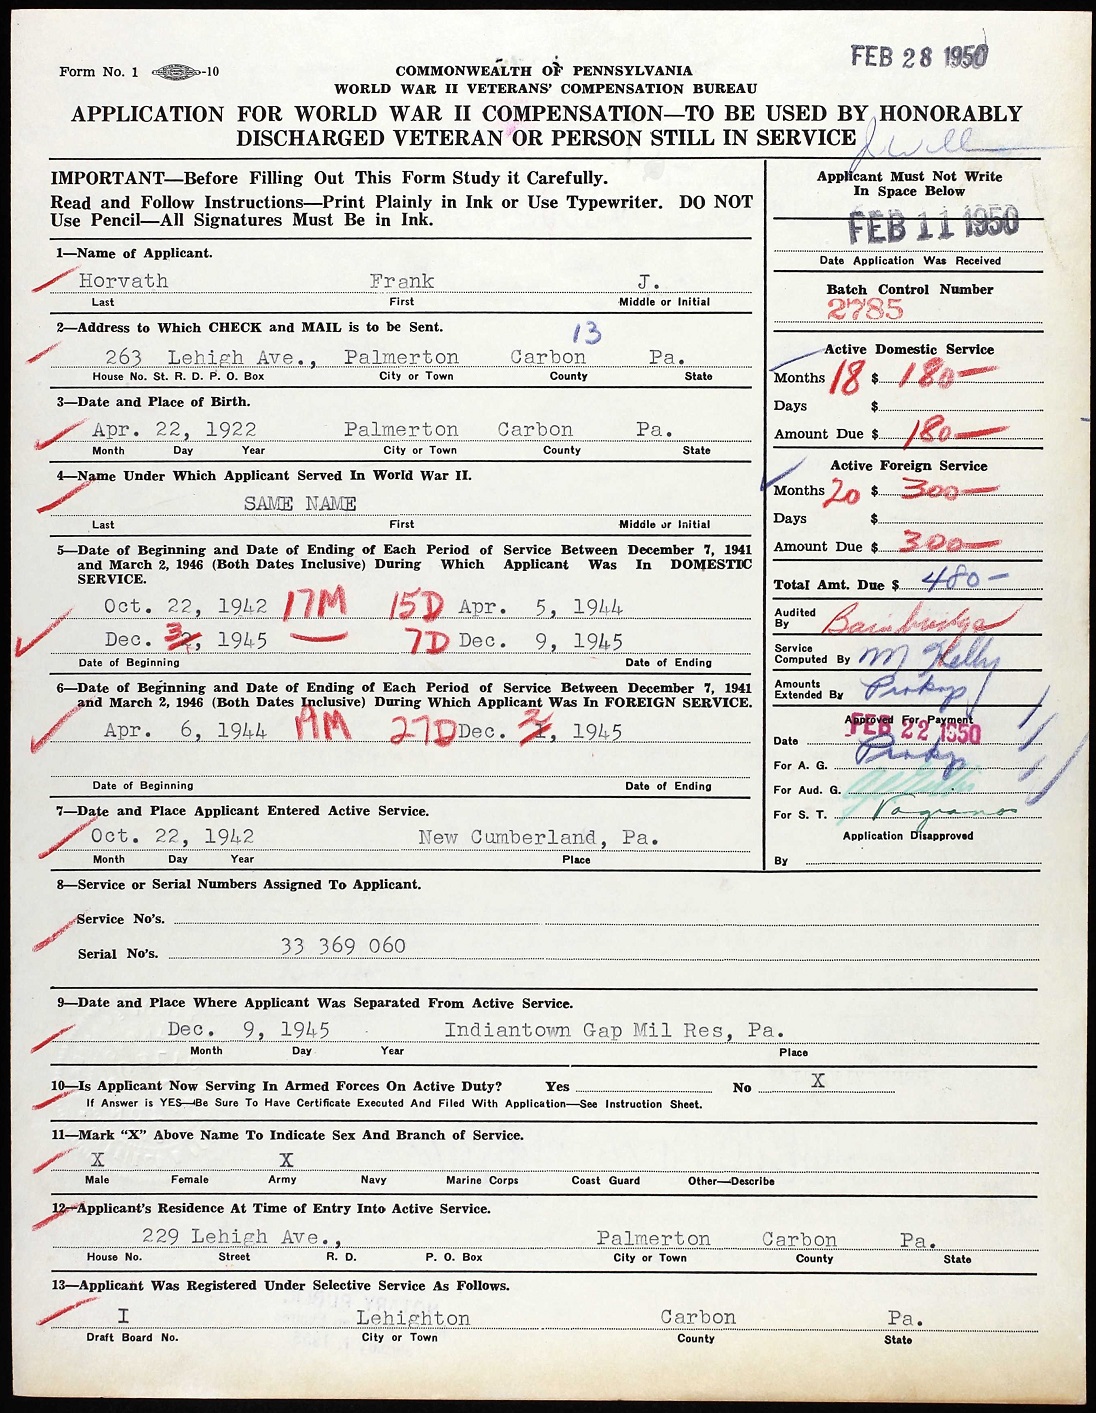 FEB 28 1950
Form No. 1 -10
COMMONWEALTH OF PENNSYLVANIA
WORLD WAR II VETERANS' COMPENSATION BUREAU
APPLICATION FOR WORLD WAR II COMPENSATION—TO BE USED BY HONORABLY
DISCHARGED VETERAN OR PERSON STILL IN SERVICE
IMPORTANT—Before Filling Out This Form Study it Carefully.
Read and Follow Instructions—Print Plainly in Ink or Use Typewriter. DO NOT
Use Pencil—All Signatures Must Be in Ink.
1—Name of Applicant.
Horvath Frank J.
Last First Middle or Initial
2—Address to Which CHECK and MAIL is to be Sent.
13
263 Lehigh Ave., Palmerton Carbon Pa.
House No. St. R. D. P. O. Box City or Town County State
3—Date and Place of Birth.
Apr. 22, 1922 Palmerton Carbon Pa.
Month Day Year City or Town County State
4—Name Under Which Applicant Served In World War II.
SAME NAME
Last First Middle or Initial
5—Date of Beginning and Date of Ending of Each Period of Service Between December 7, 1941
and March 2, 1946 (Both Dates Inclusive) During Which Applicant Was In DOMESTIC
SERVICE.
Oct. 22, 1942 17M 15D Apr. 5, 1944
Dec. 3, 1945 7D Dec. 9, 1945
Date of Beginning Date of Ending
6—Date of Beginning and Date of Ending of Each Period of Service Between December 7, 1941
and March 2, 1946 (Both Dates Inclusive) During Which Applicant Was In FOREIGN SERVICE.
Apr. 6, 1944 19M 27D Dec. 2, 1945
Date of Beginning Date of Ending
7—Date and Place Applicant Entered Active Service.
Oct. 22, 1942 New Cumberland, Pa.
Month Day Year Place
Applicant Must Not Write
In Space Below
FEB 11 1950
Date Application Was Received
Batch Control Number
2785
Active Domestic Service
Months 18 $ 180—
Days $
Amount Due $ 180—
Active Foreign Service
Months 20 $ 300—
Days $
Amount Due $ 300—
Total Amt. Due $ 480—
Audited
By Bainbridge
Service
Computed By M Kelly
Amounts
Extended By Prokop
Approved For Payment
Date FEB 22 1950
For A. G. Prokop
For Aud. G.
For S. T.
Application Disapproved
By
8—Service or Serial Numbers Assigned To Applicant.
Service No's.
Serial No's. 33 369 060
9—Date and Place Where Applicant Was Separated From Active Service.
Dec. 9, 1945 Indiantown Gap Mil Res, Pa.
Month Day Year Place
10—Is Applicant Now Serving In Armed Forces On Active Duty? Yes No X
If Answer is YES—Be Sure To Have Certificate Executed And Filed With Application—See Instruction Sheet.
11—Mark "X" Above Name To Indicate Sex And Branch of Service.
X X
Male Female Army Navy Marine Corps Coast Guard Other—Describe
12—Applicant's Residence At Time of Entry Into Active Service.
229 Lehigh Ave., Palmerton Carbon Pa.
House No. Street R. D. P. O. Box City or Town County State
13—Applicant Was Registered Under Selective Service As Follows.
I Lehighton Carbon Pa.
Draft Board No. City or Town County State